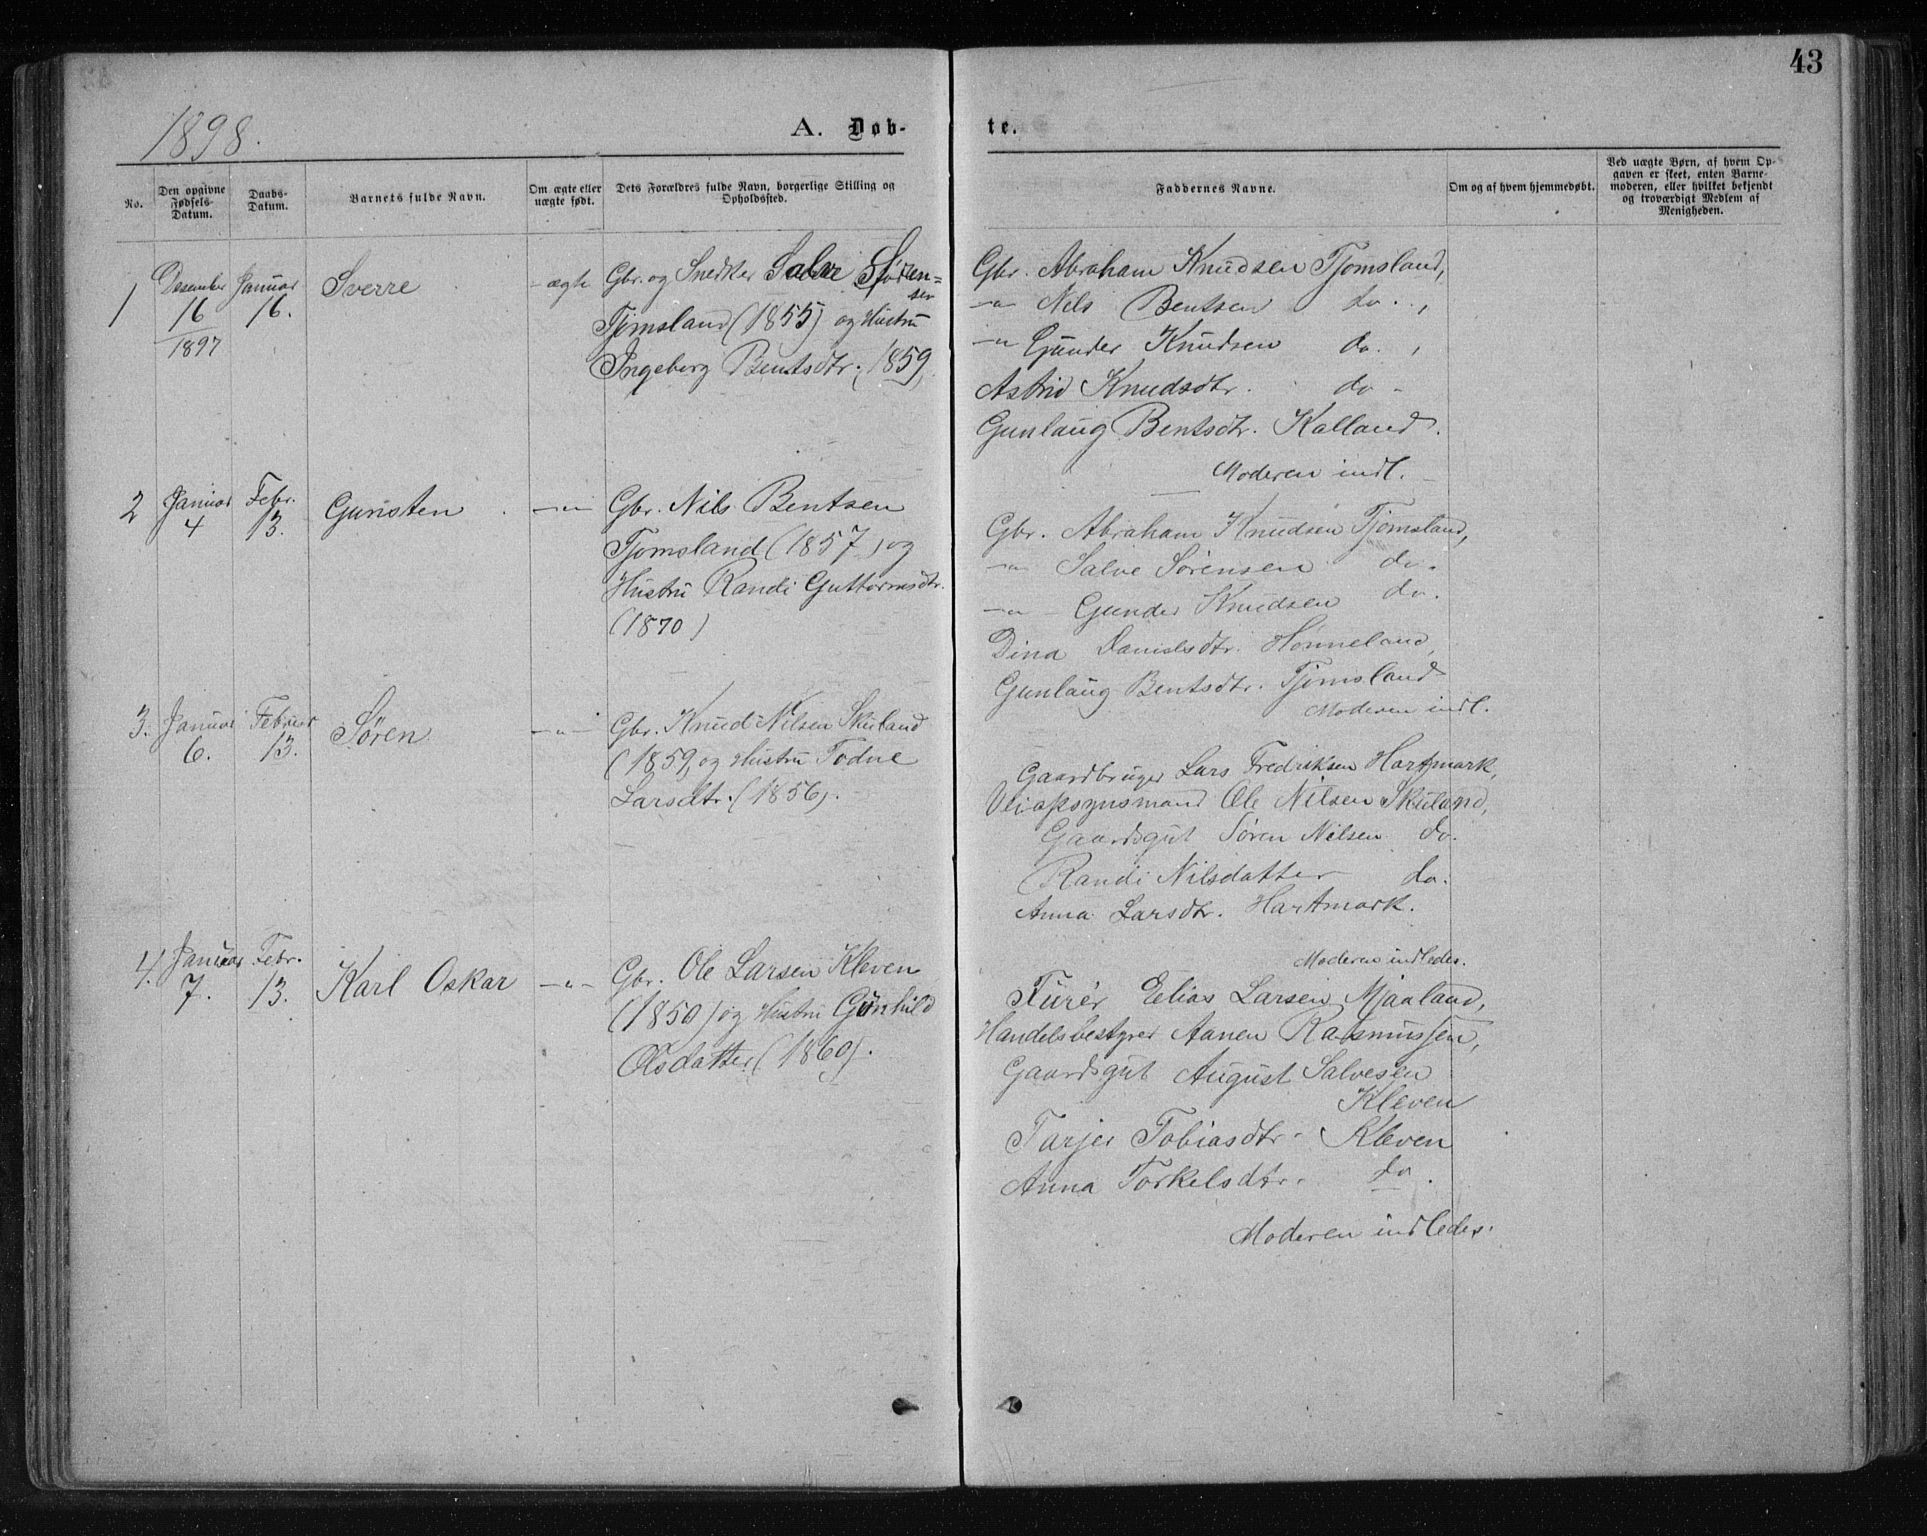 43
1898.
A. Døb-
te.
No.
Den opgivne
Fødsels-
Datum.
Daabs-
Datum.
Barnets fulde Navn.
Om ægte eller
uægte født.
Dets Forældres fulde Navn, borgerlige Stilling og
Opholdssted.
Faddernes Navne.
Om og af hvem hjemmedøbt.
Ved uægte Børn, af hvem Op-
gaven er skeet, enten Barne-
moderen, eller hvilket bekjendt
og troværdigt Medlem af
Menigheden.
1
Desember
16
1897
Januar
16.
Sverre
ægte
Gbr. og Snedker Salve Sören=
sen
Tjomsland (1855) og Hustru
Ingeborg Bentsdtr. (1859)
Gbr. Abraham Knudsen Tjomsland,
-"- Nils Bentsen do.,
-"- Gunder Knudsen do.,
Astrid Knudsdtr. do -
Gunlaug Bentsdtr. Kalland.
Moderen indl.
2
Januar
4
Febr.
13.
Gunsten
-"-
Gbr. Nils Bentsen
Tjomsland (1857) og
Hustru Randi Guttormsdtr.
(1870)
Gbr. Abraham Knudsen Tjomsland,
-"- Salve Sörensen do.
-"- Gunder Knudsen do.
Dina Danielsdtr. Hönneland,
Gunlaug Bentsdtr. Tjomsland
Moderen indl.
3.
Januar
6.
Februar
13.
Sören
-"-
Gbr. Knud Nilsen Skuland
(1859) og Hustru Todne
Larsdtr. (1856).
Gaardbruger Lars Fredriksen Hartmark,
Veiopsynsmand Ole Nilsen Skuland,
Gaardsgut Sören Nilsen do.
Randi Nilsdatter do.
Anna Larsdtr. Hartmark.
Moderen indledes.
4.
Januar
7.
Febr.
13.
Karl Oskar
-"-
Gbr. Ole Larsen Kleven
(1850) og Hustru Gunhild
Olsdatter (1860).
Furér Elias Larsen Mjaaland,
Handelsbestyrer Aanen Rasmussen,
Gaardsgut August Salvesen
Kleven
Tarjer Tobiasdtr. Kleven
Anna Torkelsdtr. do.
Moderen indledes.